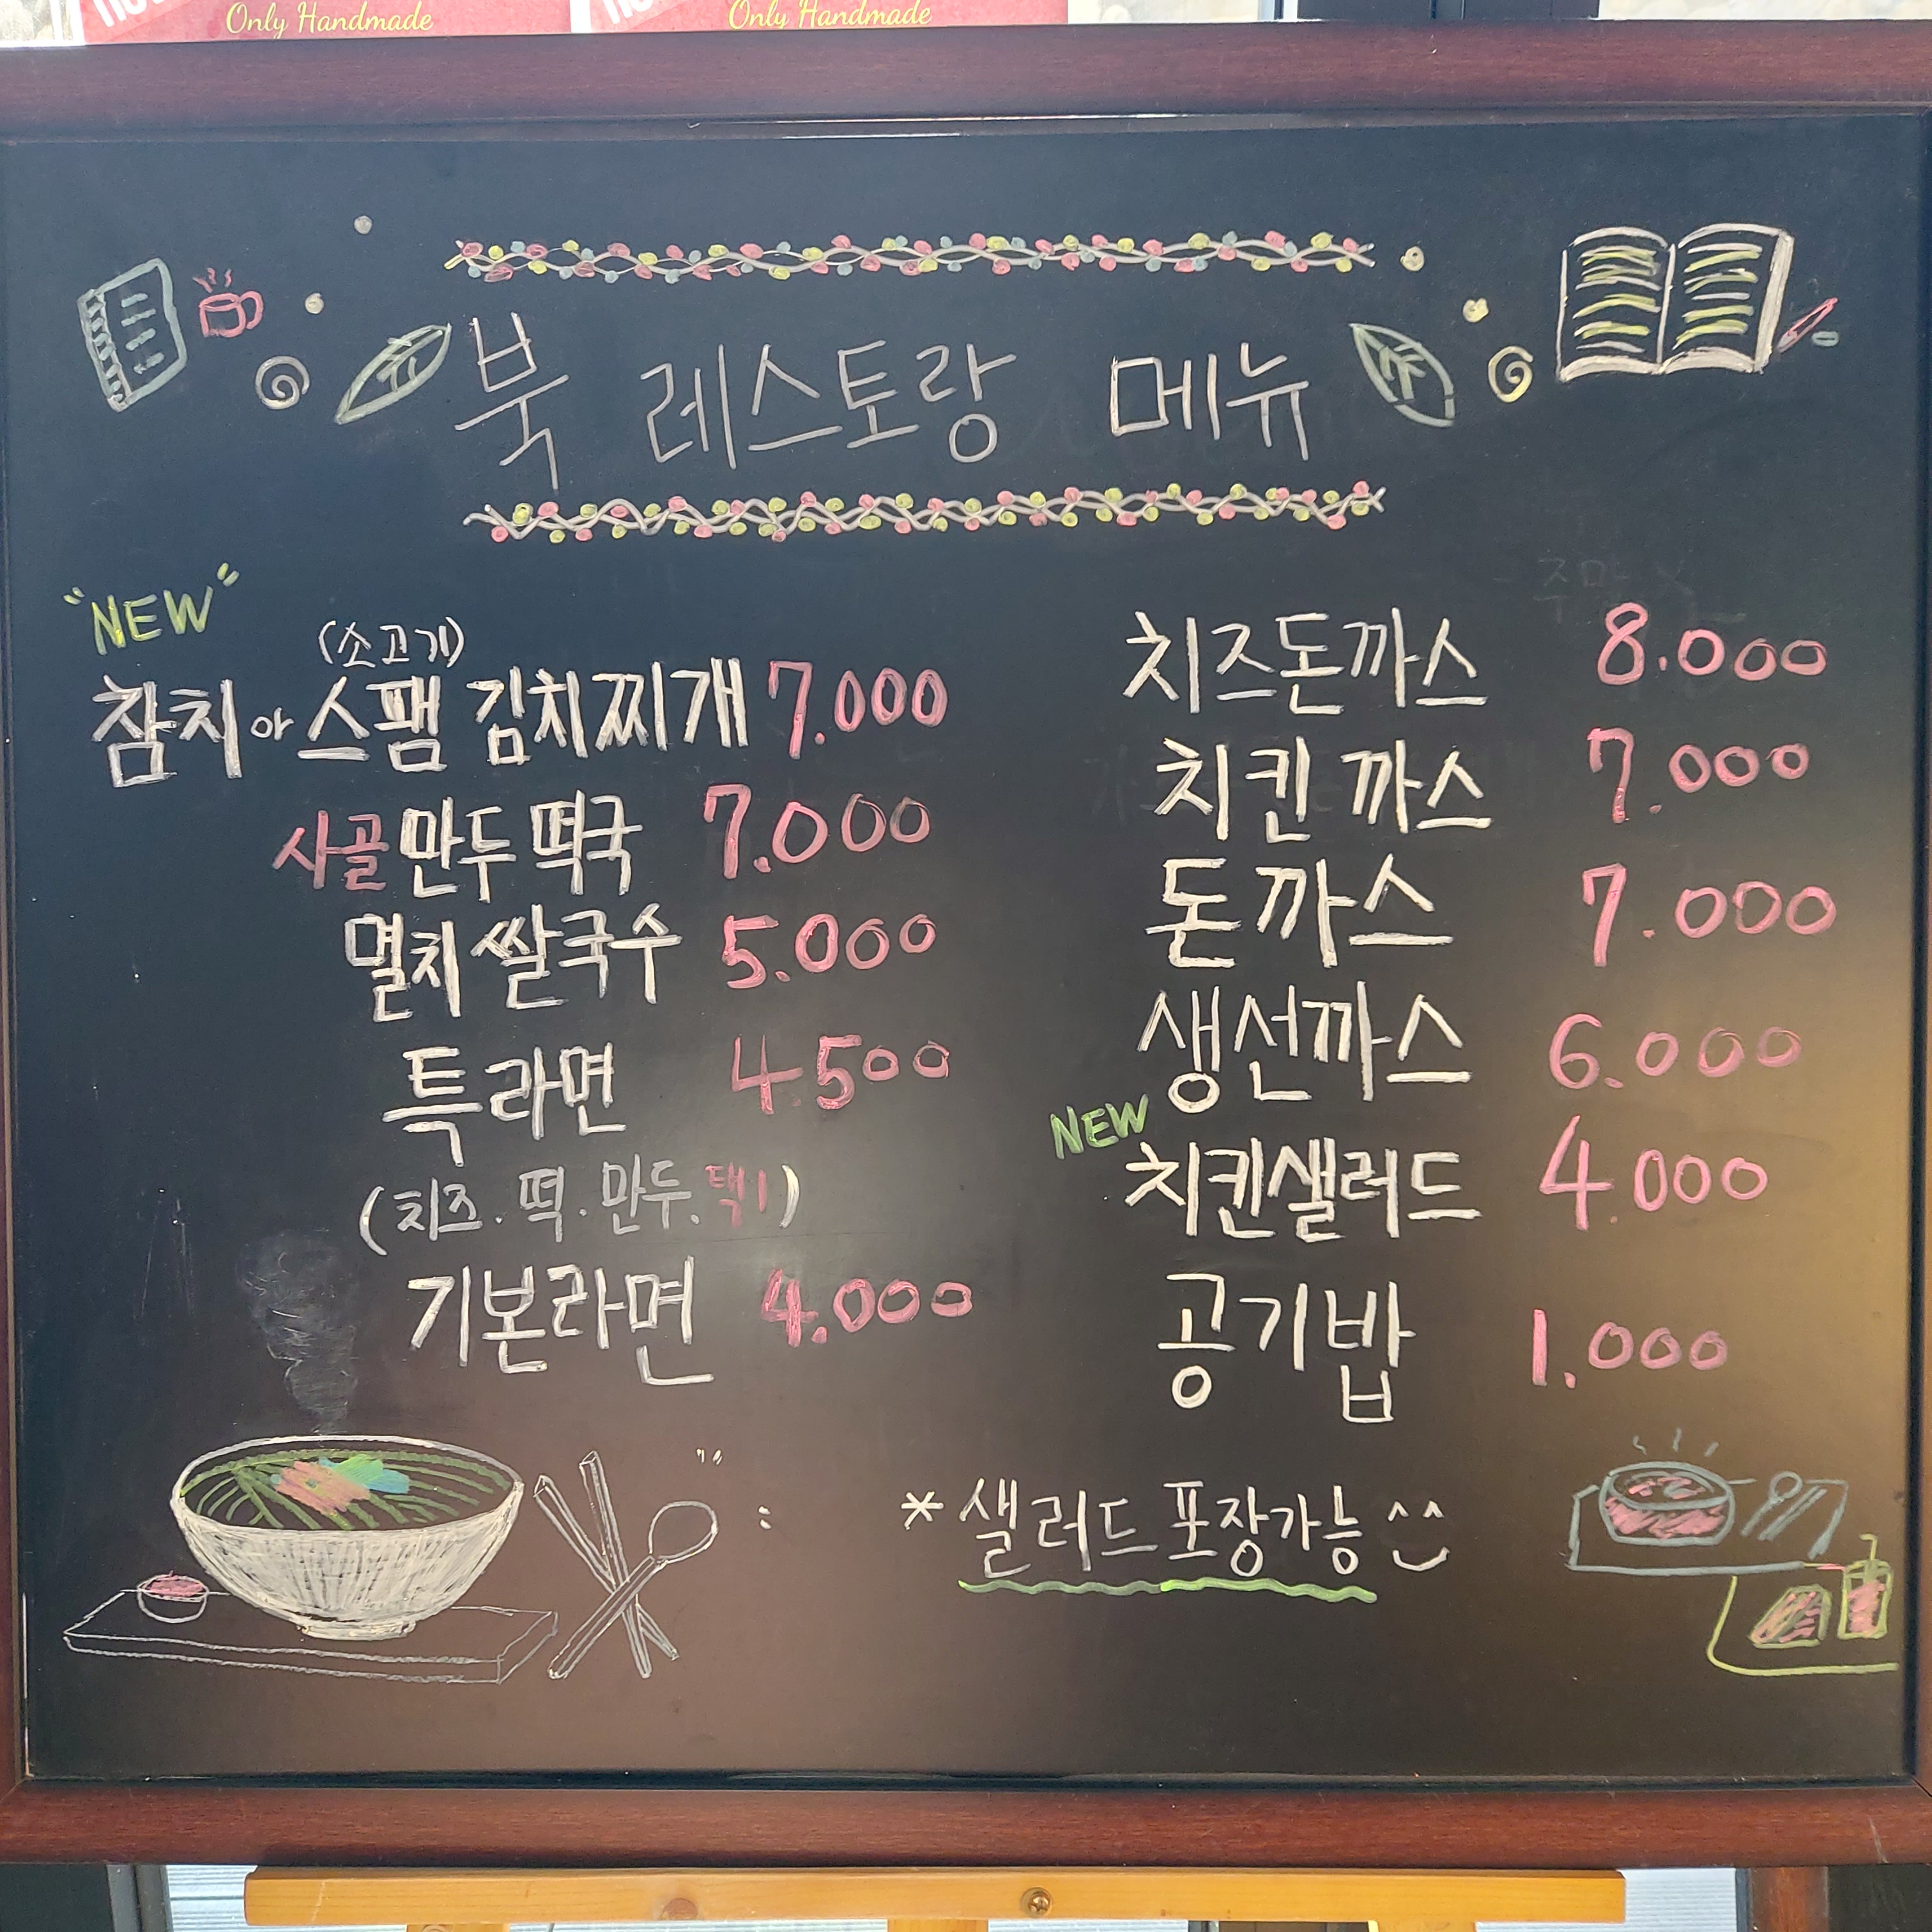 Only Handmade
Only Handmade
북 레스토랑 메뉴
"NEW"
(소고기)
참치아스팸 김치찌개 7.000
사골만두떡국 7.000
멸치쌀국수 5.000
특라면 4.500
(치즈.떡.만두.택1)
기본라면 4.000
치즈돈까스 8.000
치킨까스 7.000
돈까스 7.000
생선까스 6.000
NEW
치킨샐러드 4.000
공기밥 1.000
*샐러드포장가능^^